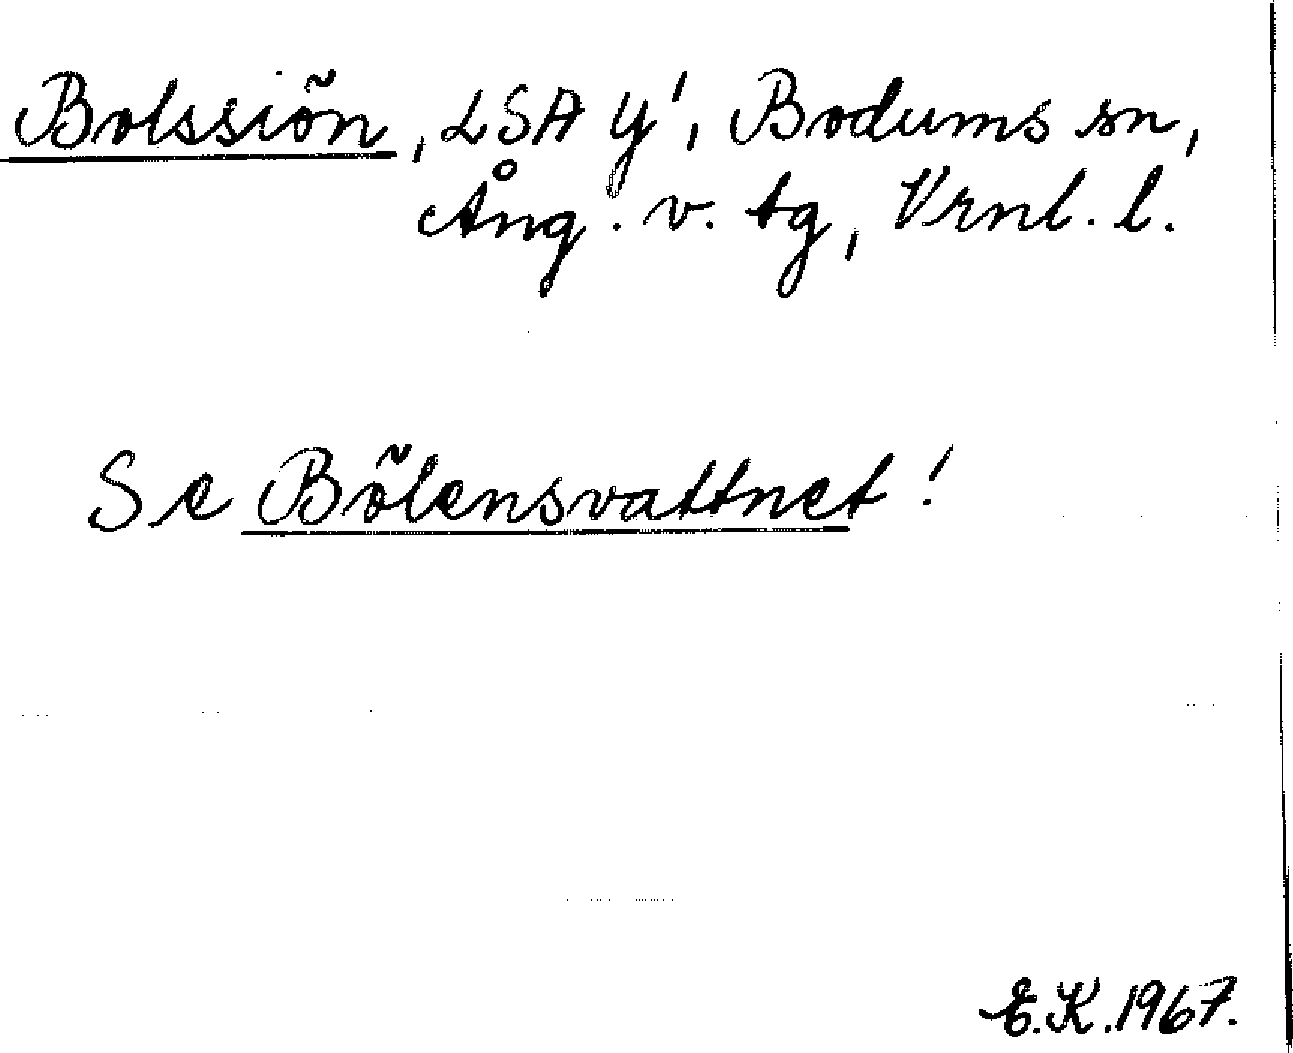 Bolssiön, LSA Y', Bodums sn,
Ång. v. tg, Vrnl. l.
Se Bölensvattnet!
E.K.1967.